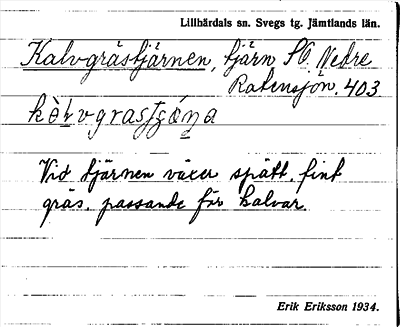 Lillhärdals sn. Svegs tg. Jämtlands län.
Kalvgrästjärnen, tjärn SO. Nedre
Ratensjön. 403
Vid tjärnen växer spätt, fint
gräs, passande för kalvar.
Erik Eriksson 1934.